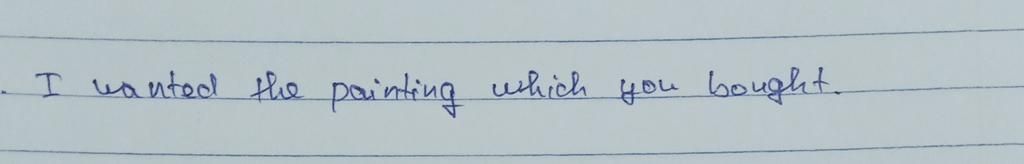 . I wanted the painting which you bought.